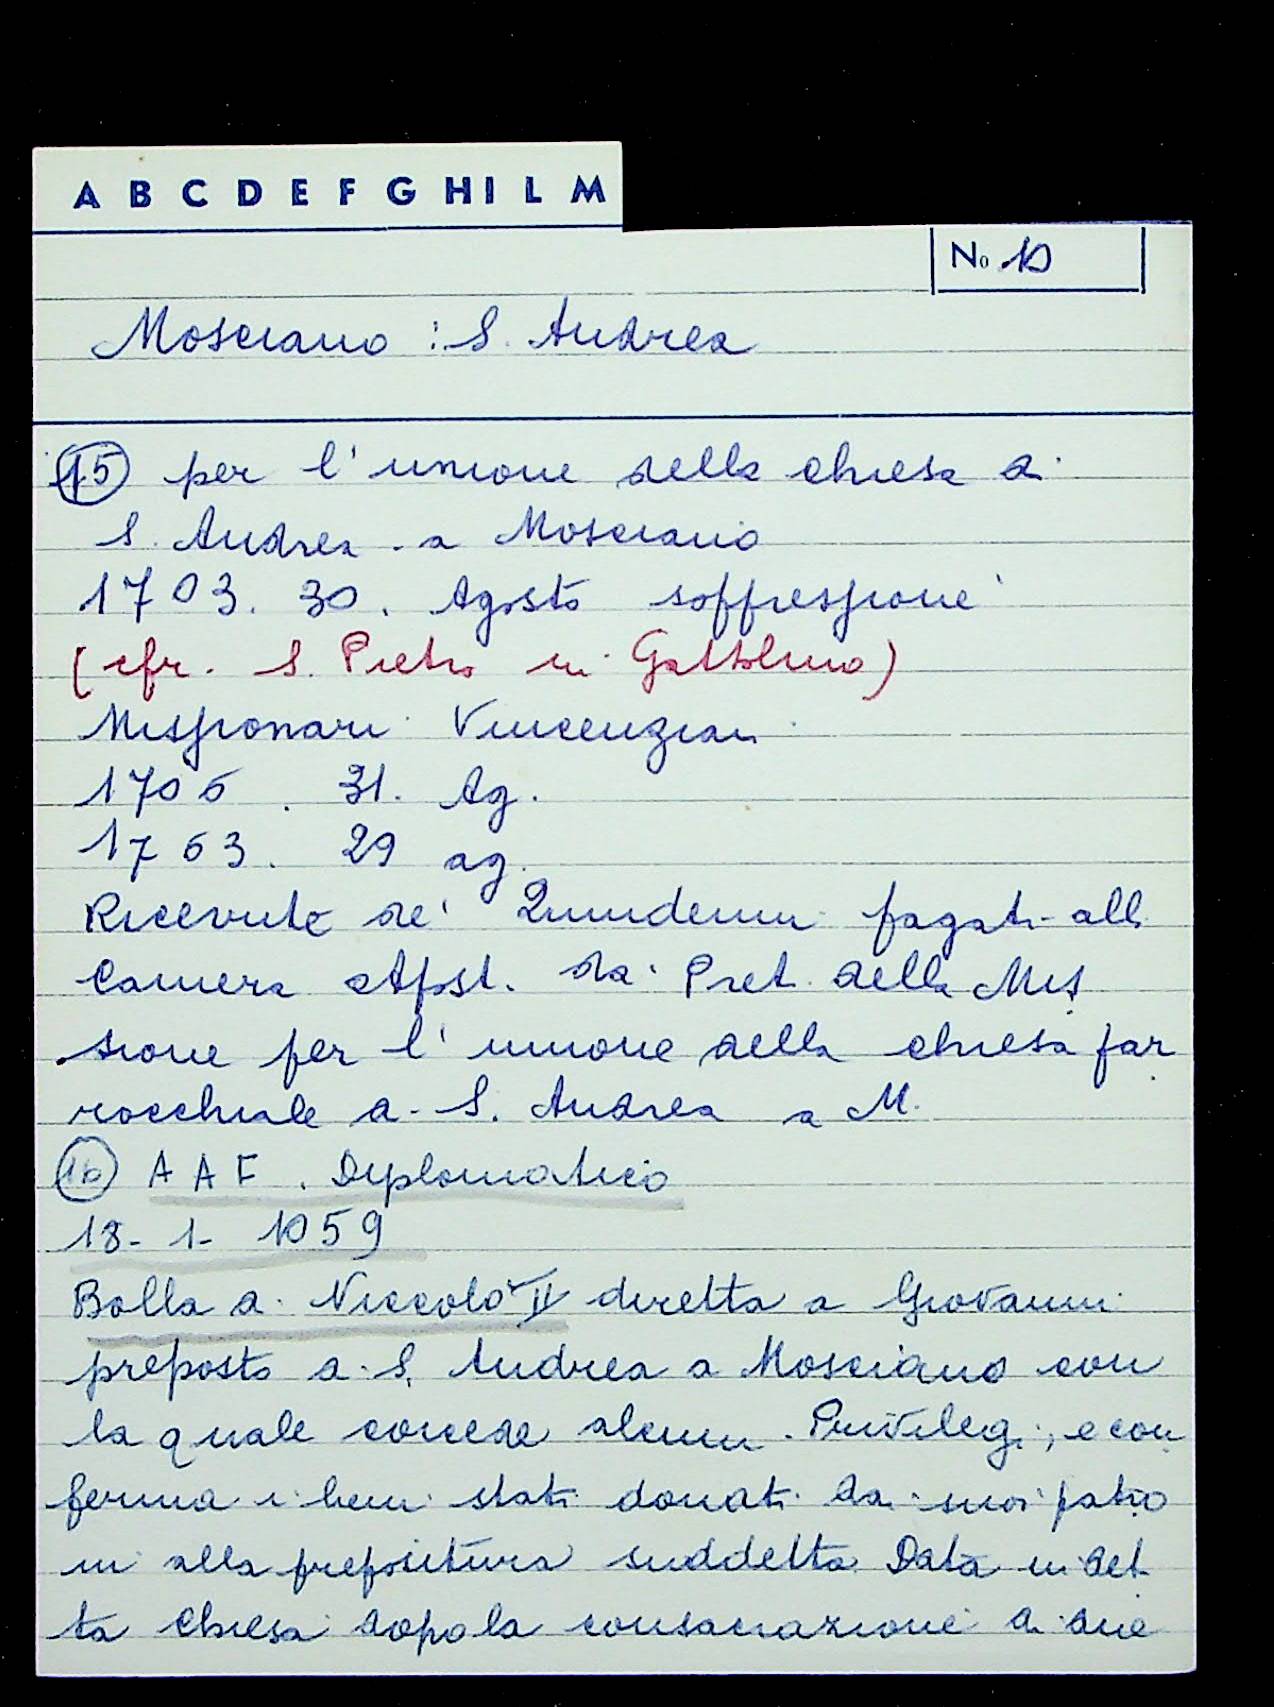 A B C D E F G H I L M
No 10
Mosciano : S. Andrea
15 per l'unione della chiesa di
S. Andrea a Mosciano
1703. 30. Agosto soppressione
(cfr. S. Pietro in Gattolino)
Missionari Vincenziani
1706. 31. Ag.
1763. 29 ag.
Ricevute de' Quindenni pagati alla
Camera Apost. da' Pret. della Mis
sione per l'unione della chiesa par
rocchiale di S. Andrea a M.
16 A A F. Diplomatico
18-1-1059
Bolla di Niccolò II diretta a Giovanni
preposto di S. Andrea a Mosciano con
la quale concede alcuni Privilegi, e con
ferma i beni stati donati dai suoi patro
ni alla prepositura suddetta. Data in det
ta chiesa dopo la consacrazione di due